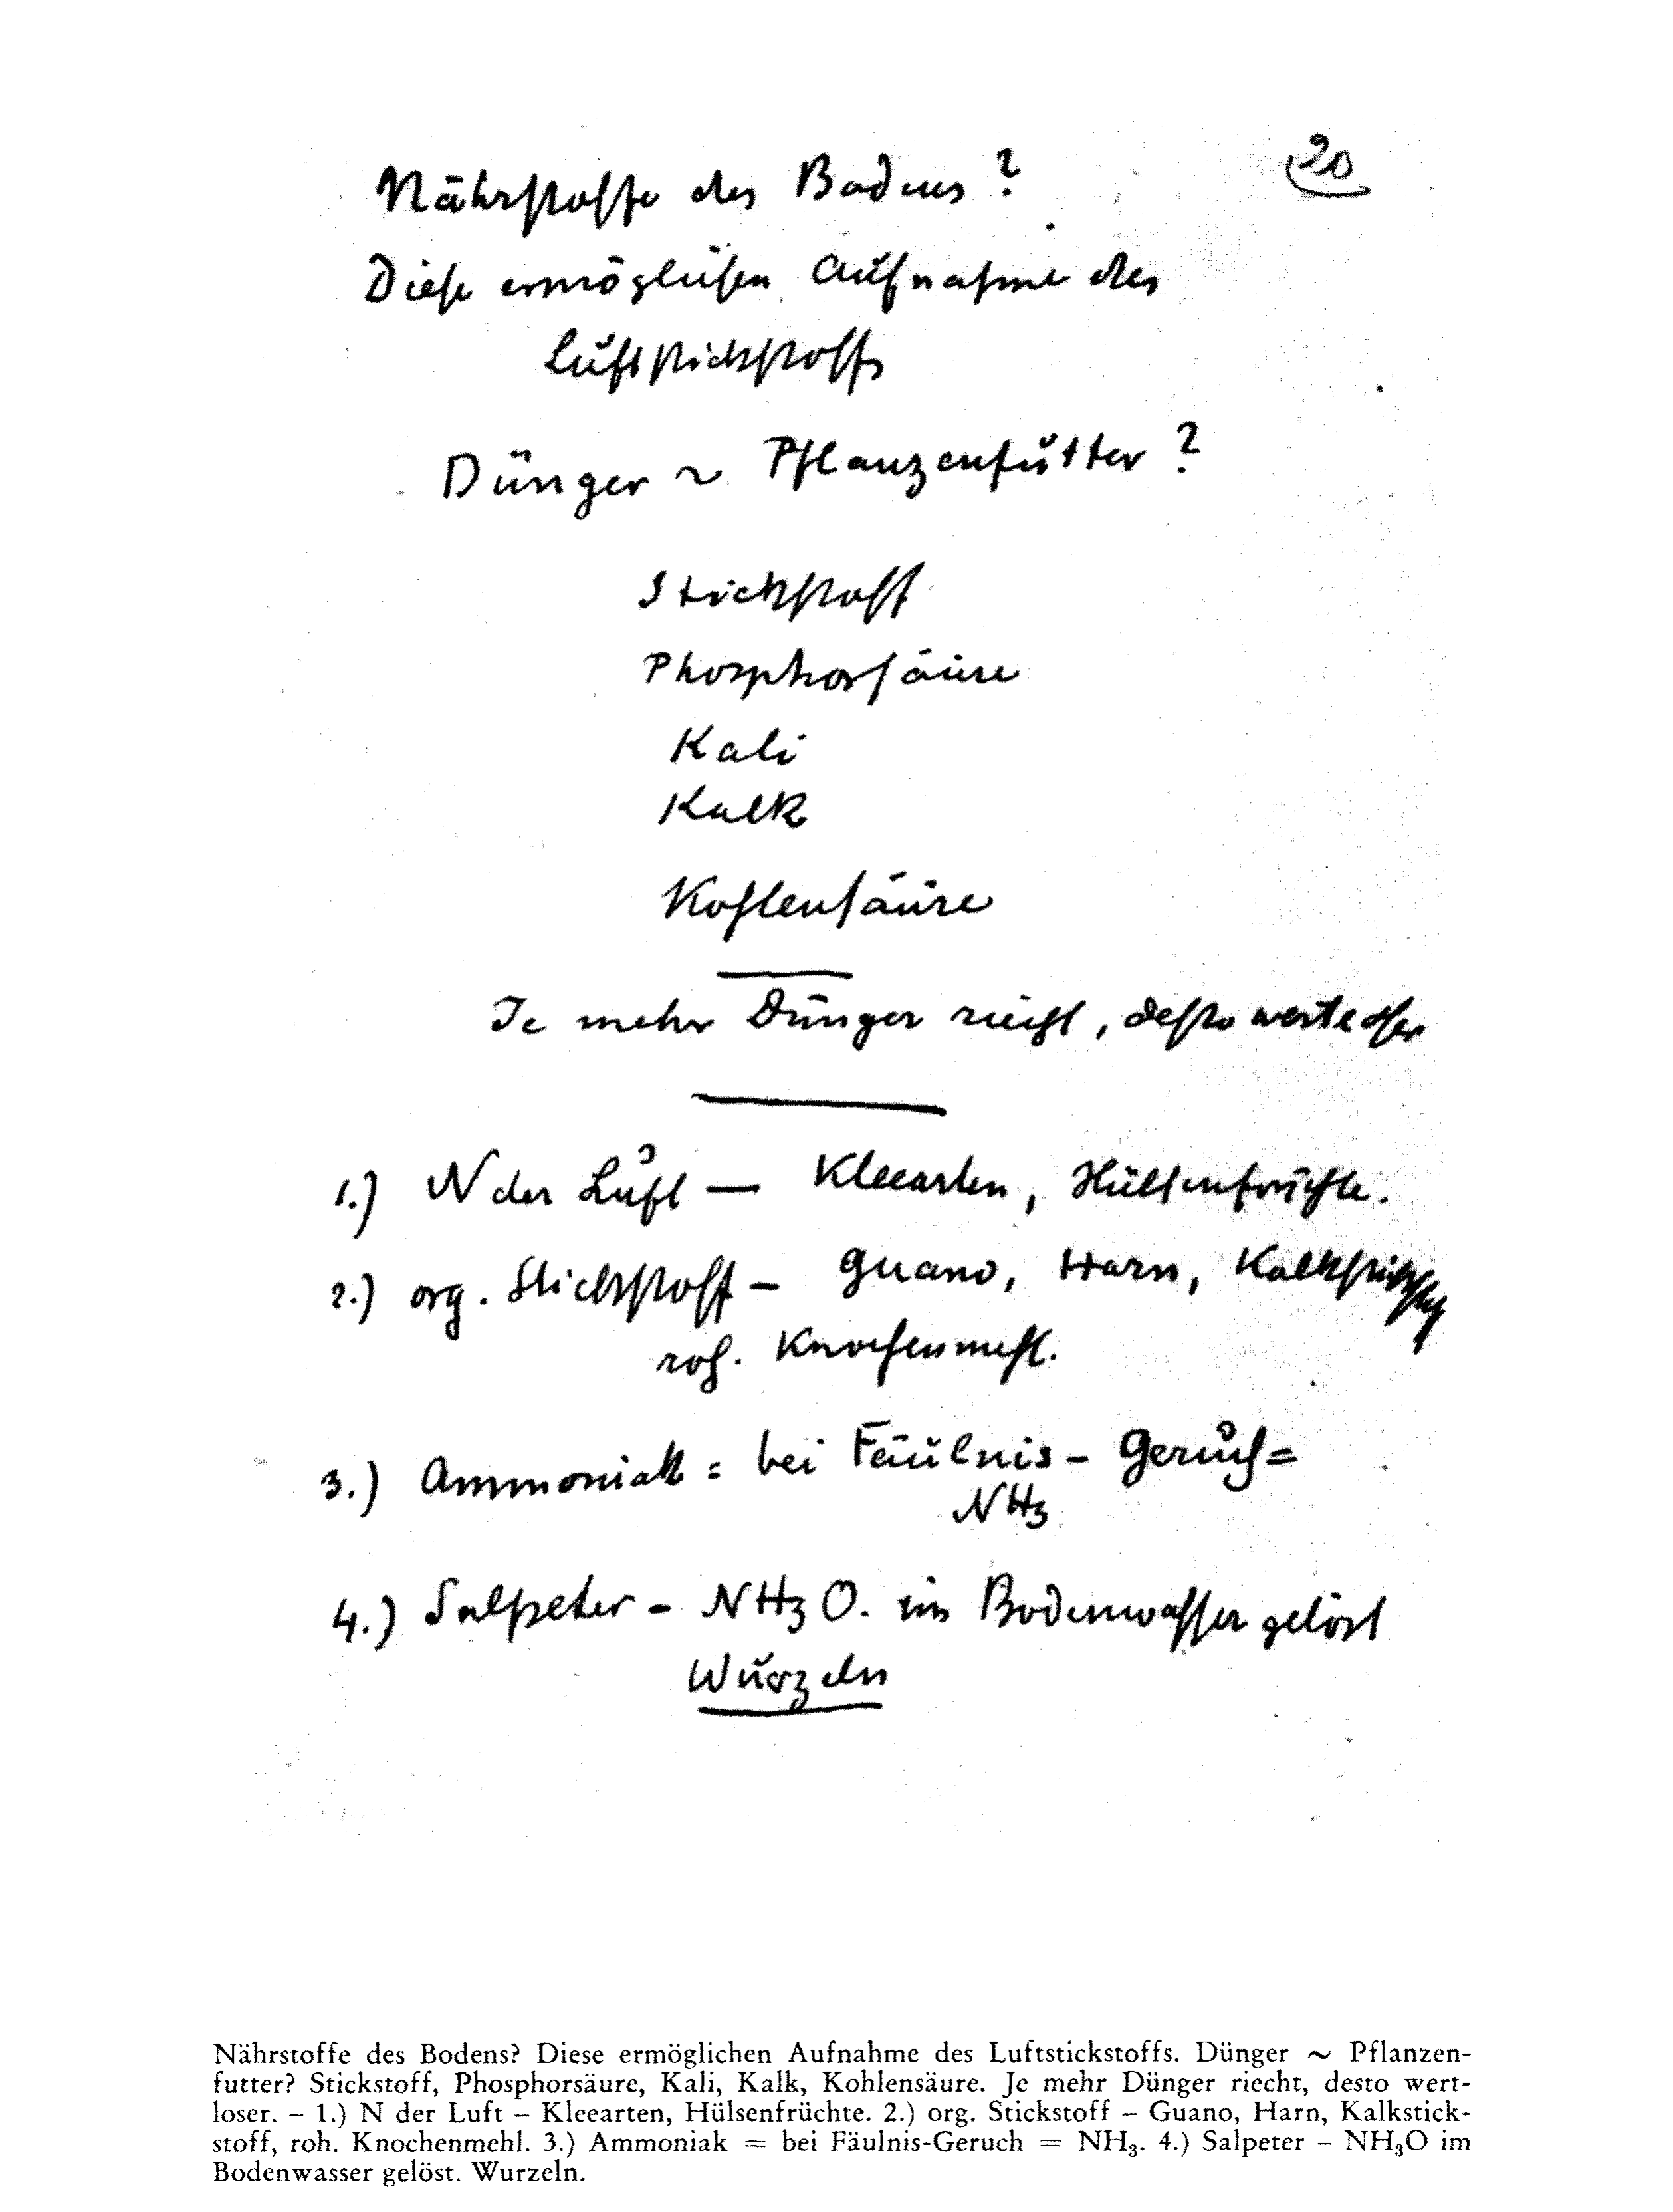 20
Nährstoffe des Bodens?
Diese ermöglichen Aufnahme des
Luftstickstoffs
Dünger ~ Pflanzenfutter?
Stickstoff
Phosphorsäure
Kali
Kalk
Kohlensäure
Je mehr Dünger riecht, desto wertloser
1.) N der Luft — Kleearten, Hülsenfrüchte.
2.) org. Stickstoff – Guano, Harn, Kalkstickstoff
roh. Knochenmehl.
3.) Ammoniak = bei Fäulnis – Geruch =
NH₃
4.) Salpeter – NH₃O. im Bodenwasser gelöst
Wurzeln
Nährstoffe des Bodens? Diese ermöglichen Aufnahme des Luftstickstoffs. Dünger ~ Pflanzen-
futter? Stickstoff, Phosphorsäure, Kali, Kalk, Kohlensäure. Je mehr Dünger riecht, desto wert-
loser. – 1.) N der Luft – Kleearten, Hülsenfrüchte. 2.) org. Stickstoff – Guano, Harn, Kalkstick-
stoff, roh. Knochenmehl. 3.) Ammoniak = bei Fäulnis-Geruch = NH₃. 4.) Salpeter – NH₃O im
Bodenwasser gelöst. Wurzeln.